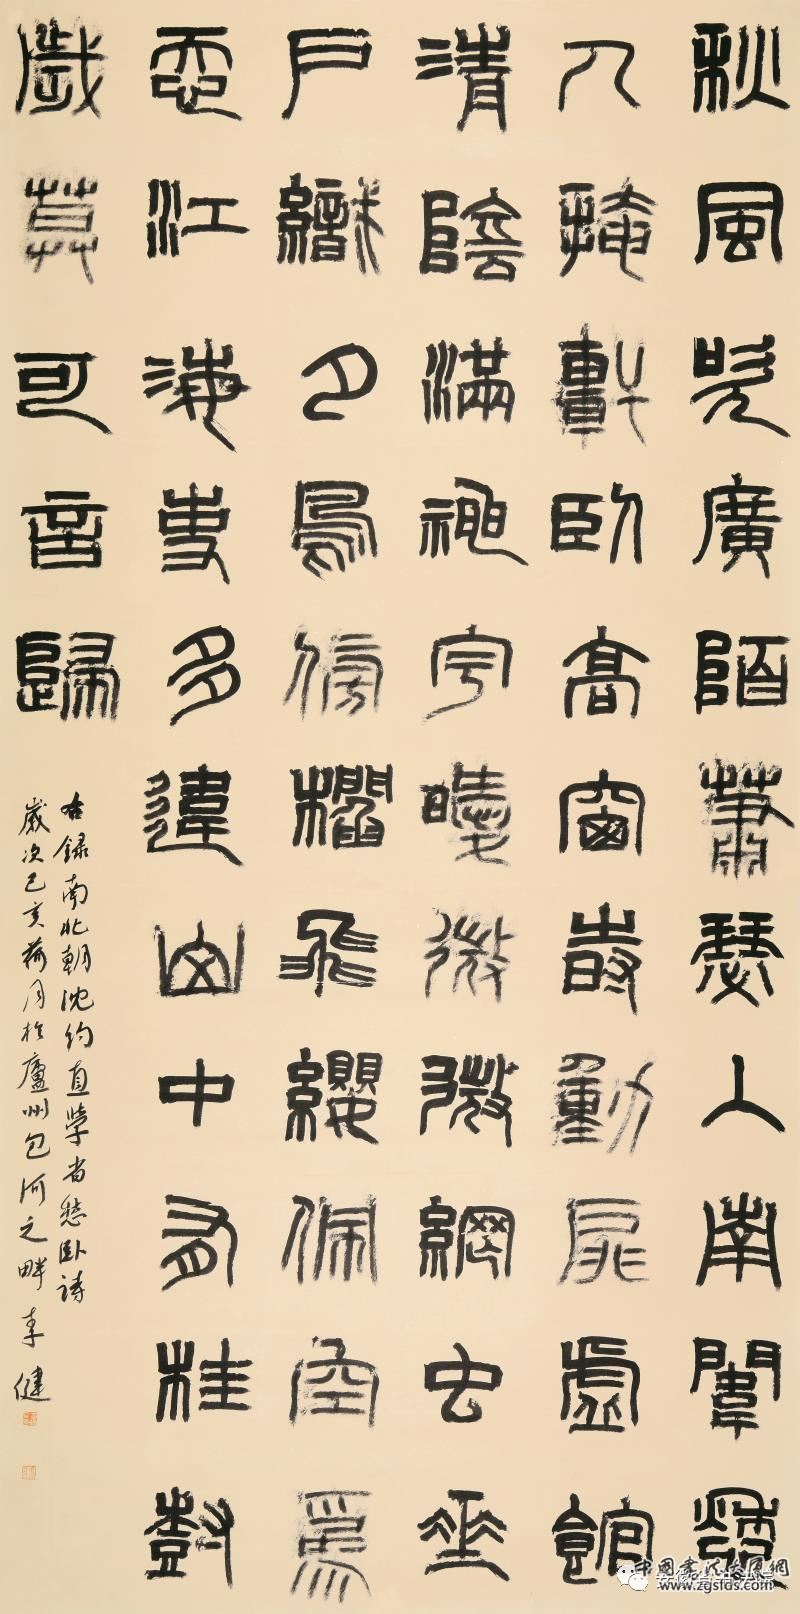 秋風吹廣陌蕭瑟入南闈愁
人掩軒臥高窗時動扉虛館
清陰滿神宇曖微微網虫垂
戶織夕鳥傍櫩飛纓佩空為
忝江海事多違山中有桂樹
歲莫可言歸
右錄南北朝沈約直學省愁臥詩
歲次己亥荷月於廬州包河之畔李健
www.zgsfds.com